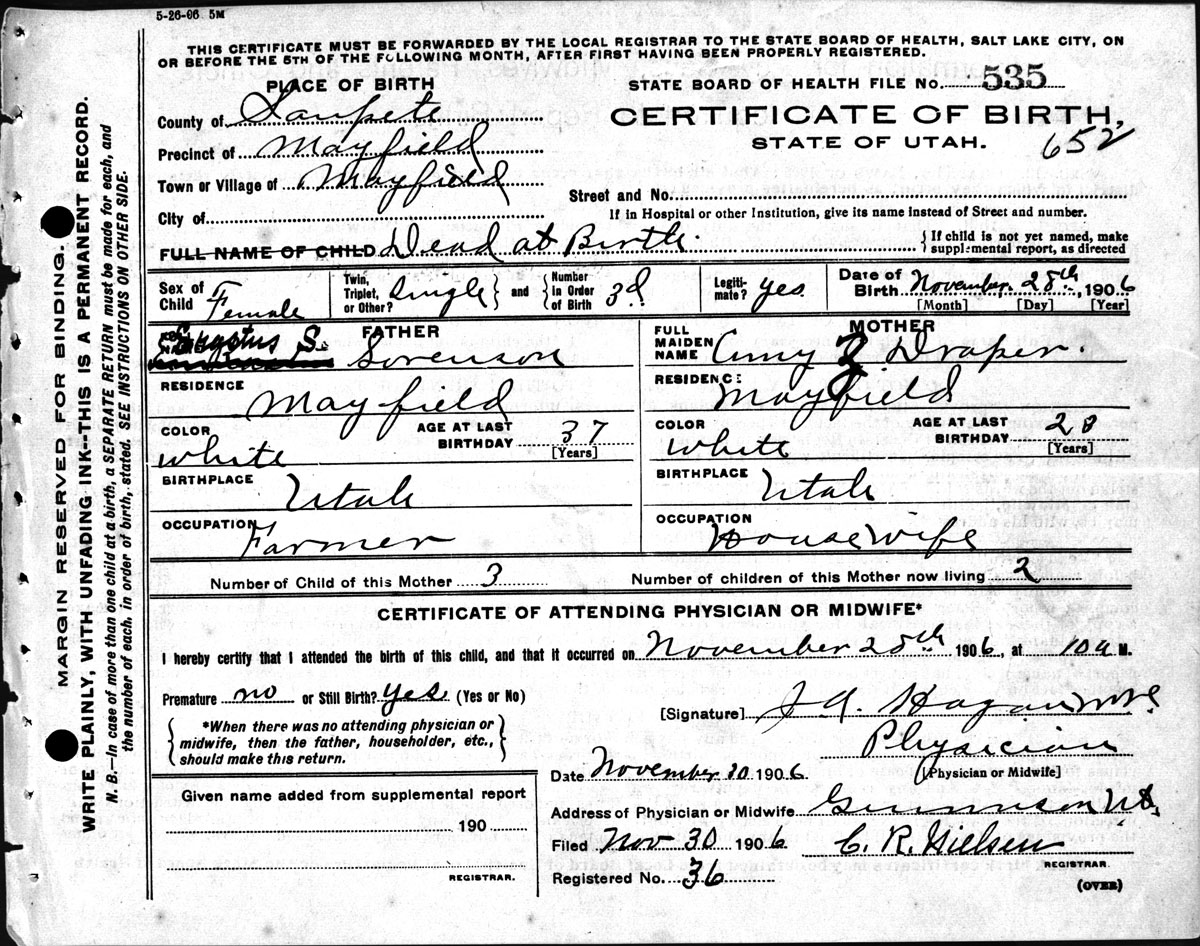 5-26-06 5M
THIS CERTIFICATE MUST BE FORWARDED BY THE LOCAL REGISTRAR TO THE STATE BOARD OF HEALTH, SALT LAKE CITY, ON
OR BEFORE THE 5TH OF THE FOLLOWING MONTH, AFTER FIRST HAVING BEEN PROPERLY REGISTERED.
PLACE OF BIRTH
STATE BOARD OF HEALTH FILE No. 535
County of Sanpete
CERTIFICATE OF BIRTH,
STATE OF UTAH.
652
Precinct of Mayfield
Town or Village of Mayfield
Street and No.
City of
If in Hospital or other Institution, give its name instead of Street and number.
FULL NAME OF CHILD Dead at Birth.
{ If child is not yet named, make supplemental report, as directed
Sex of Child Female
Twin, Triplet, or Other? Single } and { Number in Order of Birth 3d
Legitimate? yes
Date of Birth November 28th, 1906
[Month] [Day] [Year]
FATHER
S. Sorenson
MOTHER
FULL MAIDEN NAME Amy Z Draper.
RESIDENCE Mayfield
RESIDENCE Mayfield
COLOR white
AGE AT LAST BIRTHDAY 37 [Years]
COLOR white
AGE AT LAST BIRTHDAY 28 [Years]
BIRTHPLACE Utah
BIRTHPLACE Utah
OCCUPATION Farmer
OCCUPATION House wife
Number of Child of this Mother 3
Number of children of this Mother now living 2
CERTIFICATE OF ATTENDING PHYSICIAN OR MIDWIFE*
I hereby certify that I attended the birth of this child, and that it occurred on November 28th 1906, at 10 a M.
Premature no or Still Birth? yes (Yes or No)
{ *When there was no attending physician or midwife, then the father, householder, etc., should make this return. }
[Signature] J A Hagan
Physician
[Physician or Midwife]
Date November 30 1906
Given name added from supplemental report
190
REGISTRAR.
Address of Physician or Midwife Gunnison Ut.
Filed Nov 30 1906
C. R. Nielsen
REGISTRAR.
Registered No. 36
(OVER)
MARGIN RESERVED FOR BINDING.
WRITE PLAINLY, WITH UNFADING INK--THIS IS A PERMANENT RECORD.
N. B.—In case of more than one child at a birth, a SEPARATE RETURN must be made for each, and
the number of each, in order of birth, stated. SEE INSTRUCTIONS ON OTHER SIDE.